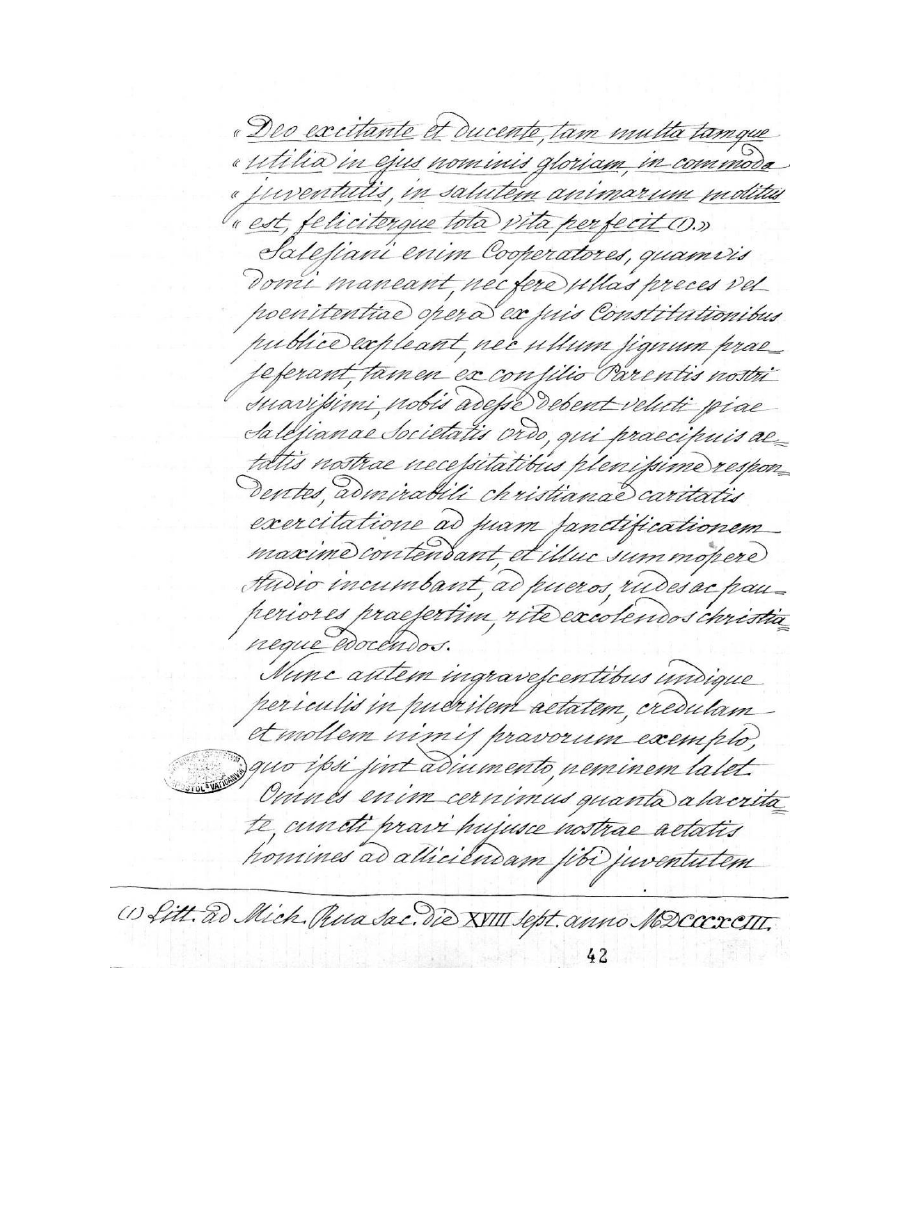 « Deo excitante et ducente, tam multa tamque
« utilia in ejus nominis gloriam, in commoda
« juventutis, in salutem animarum molitus
« est, feliciterque tota vita perfecit (1).»
Salesiani enim Cooperatores, quamvis
domi maneant, nec fere ullas preces vel
poenitentiae opera ex suis Constitutionibus
publice expleant, nec ullum signum prae_
seferant, tamen ex consilio Parentis nostri
suavissimi, nobis adesse debent veluti piae
Salesianae Societatis ordo, qui praecipuis ae=
tatis nostrae necessitatibus plenissime respon=
dentes, admirabili christianae caritatis
exercitatione ad suam sanctificationem
maxime contendant, et illuc summopere
studio incumbant, ad pueros, rudes ac pau=
periores praesertim, rite excolendos christia=
neque edocendos.
Nunc autem ingravescentibus undique
periculis in puerilem aetatem, credulam
et mollem nimis pravorum exemplo,
quo ipsi sint adiumento, neminem latet.
Omnes enim cernimus quanta alacrita=
te, cuncti pravi hujusce nostrae aetatis
homines ad alliciendam sibi juventutem
VATICANUM
(1) Litt. ad Mich. Rua Sac. die XVIII sept. anno MDCCCXCIII.
42